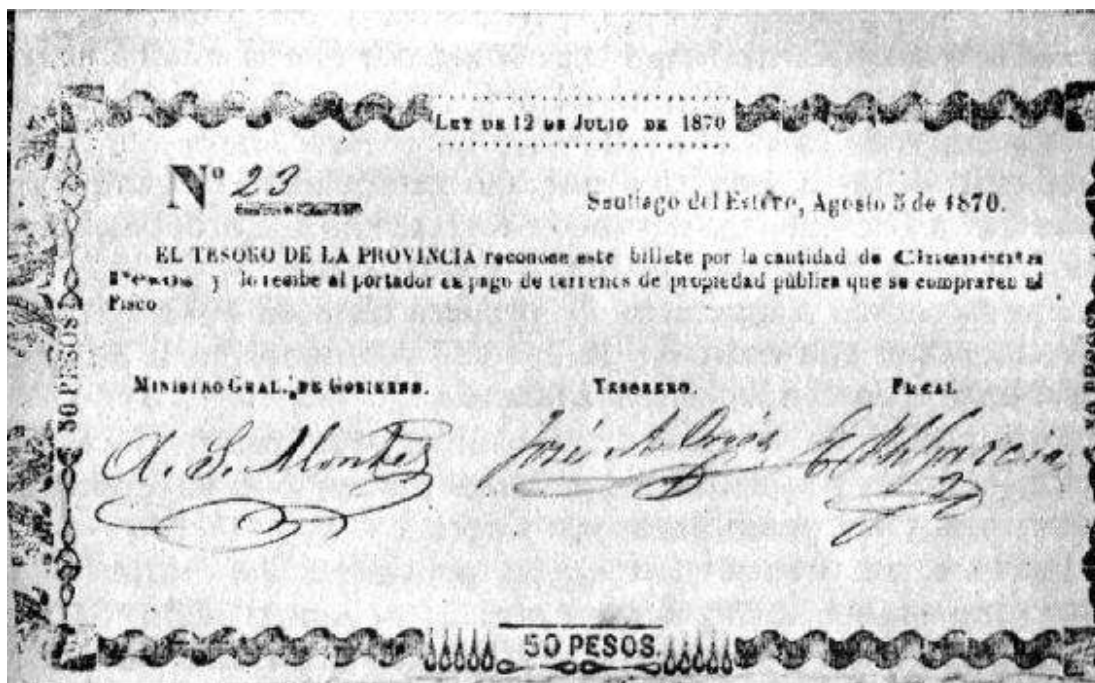 LEY DE 12 DE JULIO DE 1870
Nº 23
Santiago del Estero, Agosto 5 de 1870.
EL TESORO DE LA PROVINCIA reconose este billete por la cantidad de Cincuenta
Pesos y lo recibe al portador en pago de terrenos de propiedad pública que se compraren al
Fisco
MINISTRO GRAL. DE GOBIERNO. TESORERO. FISCAL
A. S. Montes José A. Garcia
50 PESOS
50 PESOS
50 PESOS